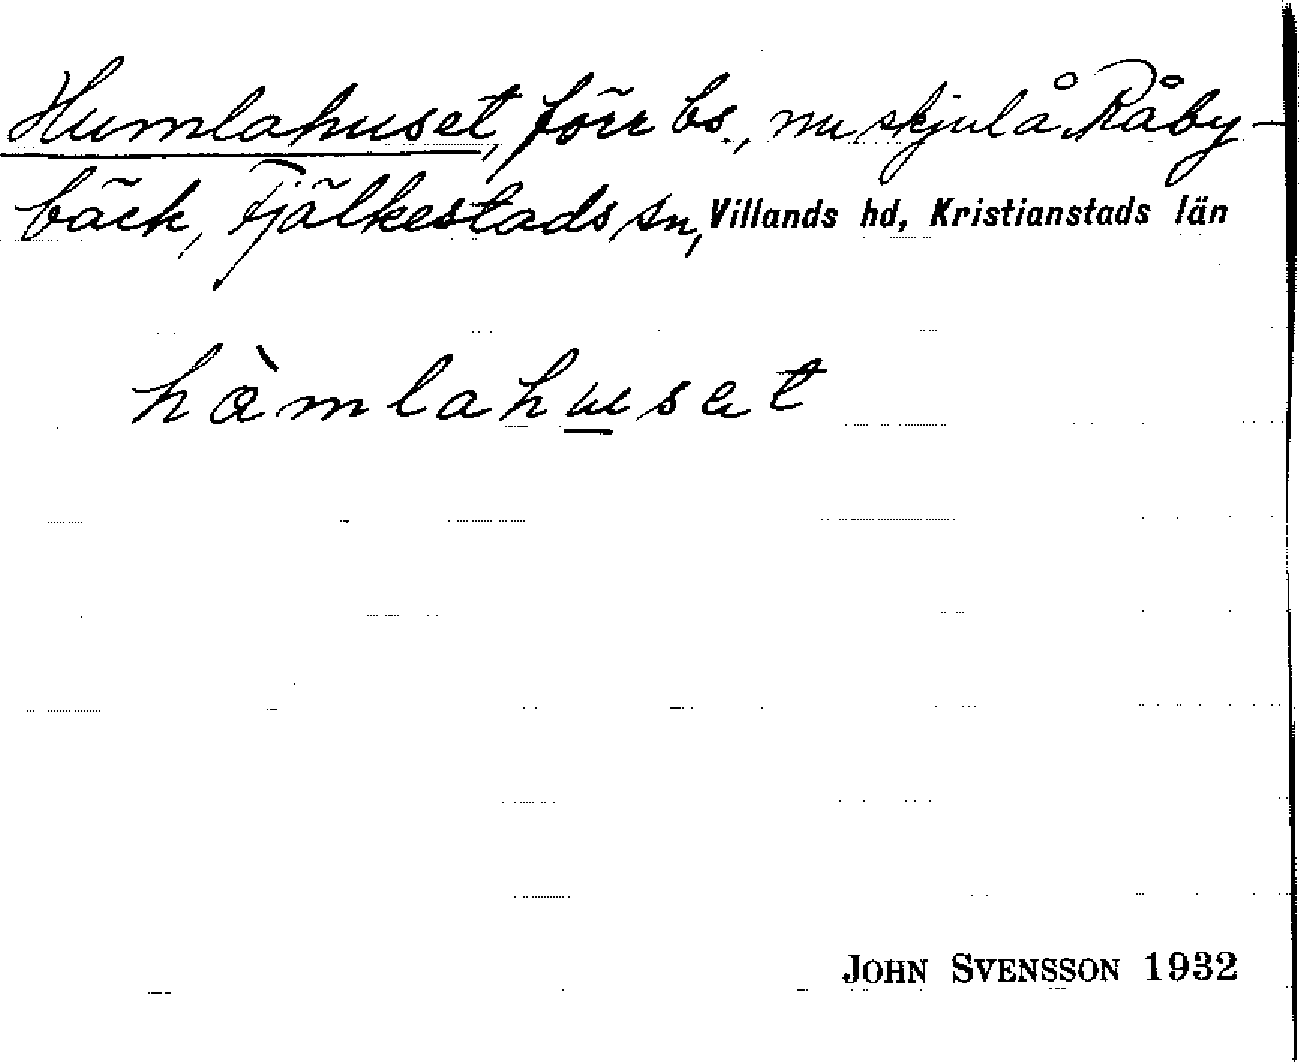 Humlahuset, förr bs., nu skjul å Råby-
bäck, Fjälkestads sn, Villands hd, Kristianstads län
hàmlahusat
JOHN SVENSSON 1932